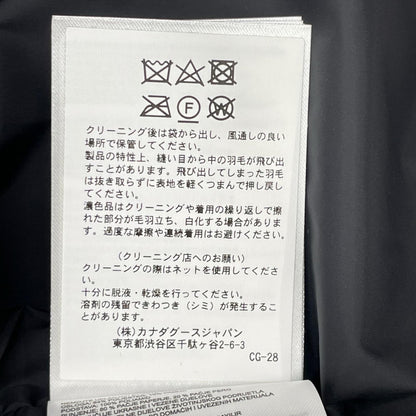 F
W
クリーニング後は袋から出し、風通しの良い
場所で保管してください。
製品の特性上、縫い目から中の羽毛が飛び出
すことがあります。飛び出してしまった羽毛
は抜き取らずに表地を軽くつまんで押し戻し
てください。
濃色品はクリーニングや着用の繰り返しで擦
れた部分が毛羽立ち、白化する場合がありま
す。過度な摩擦や連続着用はお避けください。
(クリーニング店へのお願い)
クリーニングの際はネットを使用してくださ
い。
十分に脱液・乾燥を行ってください。
溶剤の残留できわつき（シミ）が発生するこ
とがあります。
(株)カナダグースジャパン
東京都渋谷区千駄ヶ谷2-6-3
CG-28